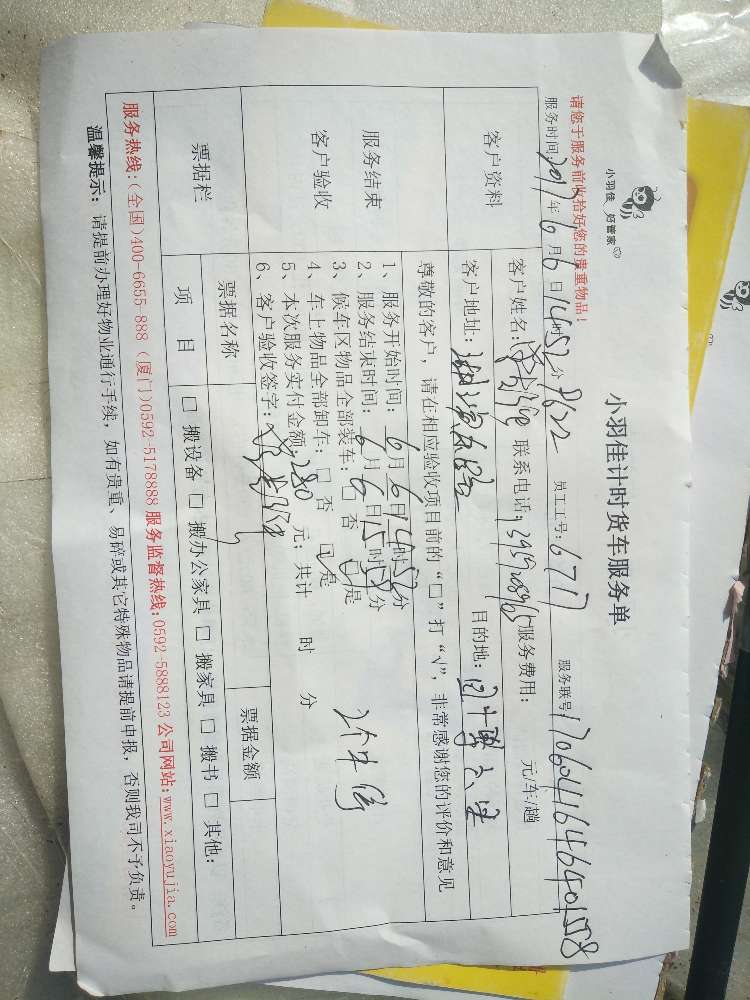 小羽佳 好管家
小羽佳计时货车服务单
请您于服务前收拾好您的贵重物品!
服务时间: 2017年6月6日14时52分 员工工号: 677 服务联号
客户资料
客户姓名: 联系电话: 服务费用: 元/车/趟
客户地址: 目的地:
服务结束
客户验收
尊敬的客户，请在相应验收项目前的“□”打“√”，非常感谢您的评价和意见
1、服务开始时间: 6月6日14时52分
2、服务结束时间: 6月6日15时52分
3、候车区物品全部装车: □ 否 ☑是
4、车上物品全部卸车: □ 否 ☑是
5、本次服务实付金额: 280 元; 共计 时 分
6、客户验收签字:
票据栏
票据名称 票据金额
项 目 □ 搬设备 □ 搬办公家具 □ 搬家具 □ 搬书 □ 其他:
服务热线:(全国)400-6655-888 (厦门)0592-5178888 服务监督热线:0592-5888123 公司网站:www.xiaoyujia.com
温馨提示: 请提前办理好物业通行手续，如有贵重、易碎或其它特殊物品请提前申报，否则我司不予负责。